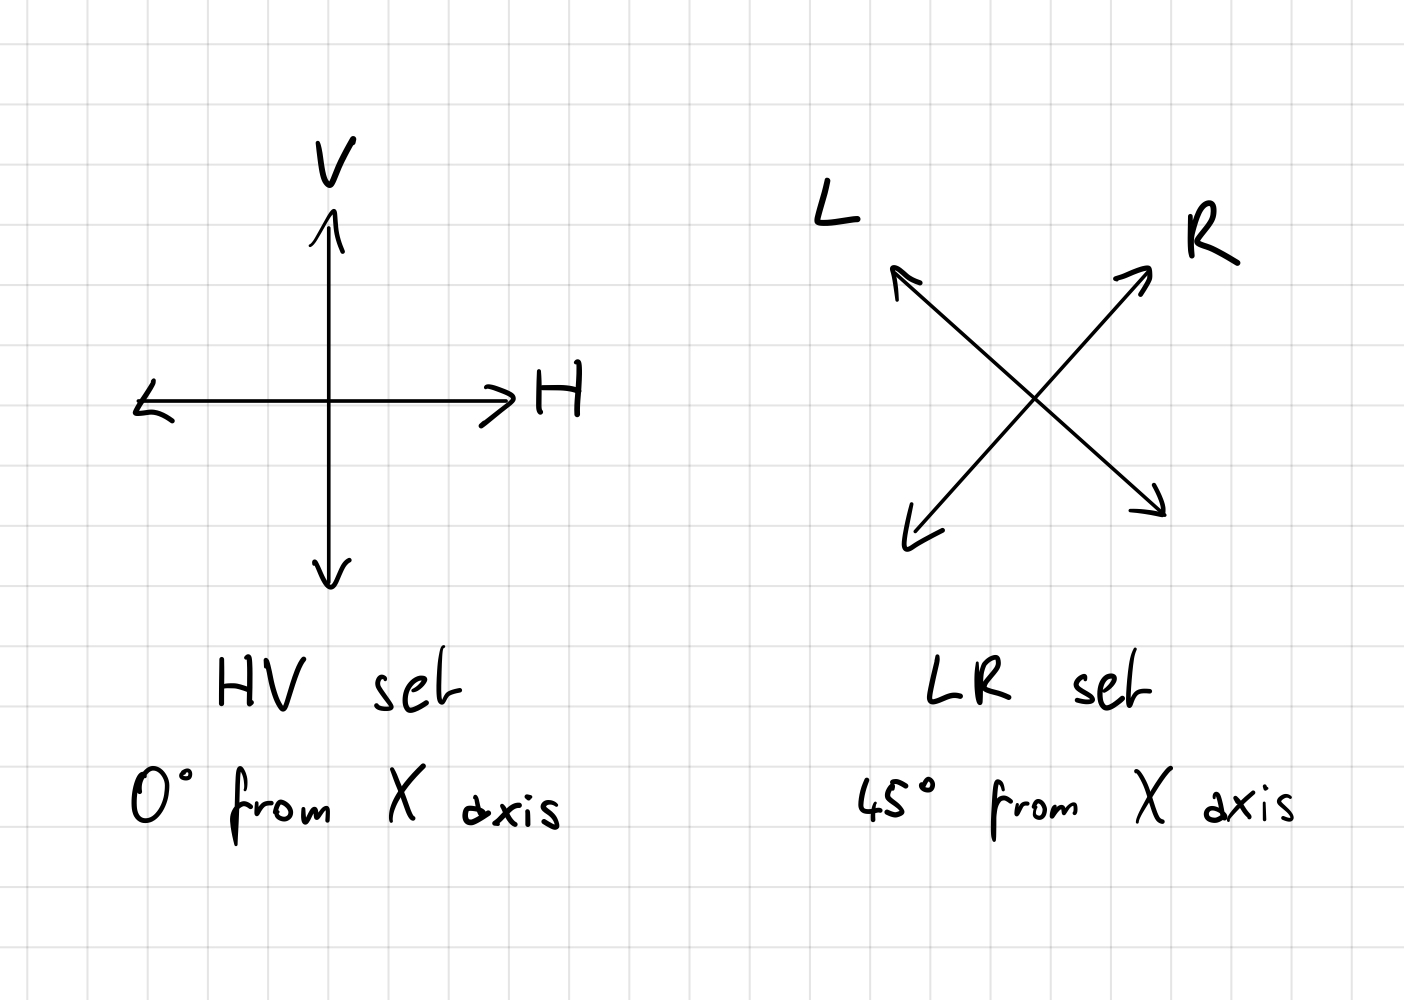 V
H
L
R
HV set
0° from X axis
LR set
45° from X axis